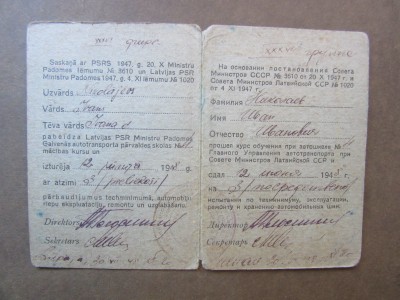 Saskaņā ar PSRS 1947. g. 20. X Ministru
Padomes lēmumu № 3610 un Latvijas PSR
Ministru Padomes 1947. g. 4. XI lēmumu № 1020
Uzvārds
Vārds Ivans
Tēva vārds Ivana d.
pabeidza Latvijas PSR Ministru Padomes
Galvenās autotransporta pārvaldes skolas №
mēcības kursu un
izturēja 2 1948 g.
ar atzīmi 3
pārbaudījumus technikminimumā, automotriņu
eksploatācijā, remontā un uzglabāšanā.
Direktors
Sekretārs
На основании постановления Совета
Министров СССР № 3610 от 20 X 1947 г. и
Совета Министров Латвийской ССР № 1020
от 4 XI 1947 г.
Фамилия Николаев
Имя Иван
Отчество Иванович
прошел курс обучения при автошколе №
Главного Управления автотранспорта при
Совете Министров Латвийской ССР и
сдал 2 июня 1948 г.
на 3 (посредственно)
испытания по техминимуму, эксплоатации,
ремонту и хранению автомобильных шин.
Директор
Секретарь